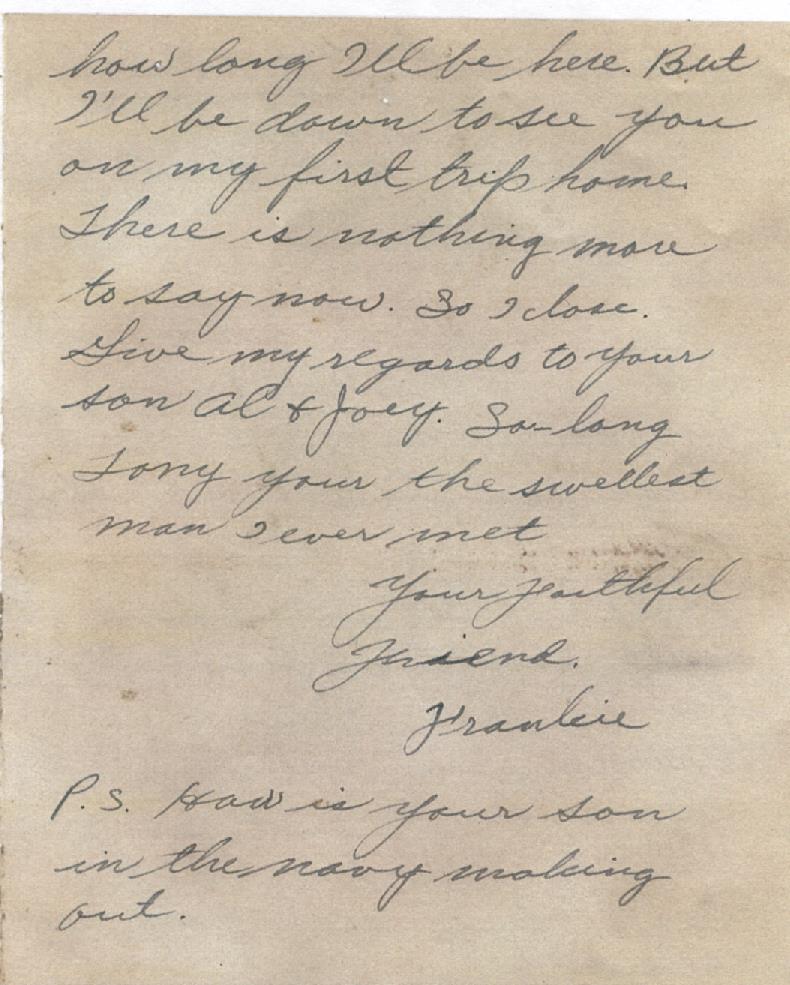 how long I'll be here. But
I'll be down to see you
on my first trip home.
There is nothing more
to say now. So I close.
Give my regards to your
son Al & Joey. So-long
Tony your the swellest
man I ever met
Your faithful
Friend.
Frankie
P.S. How is your son
in the navy making
out.